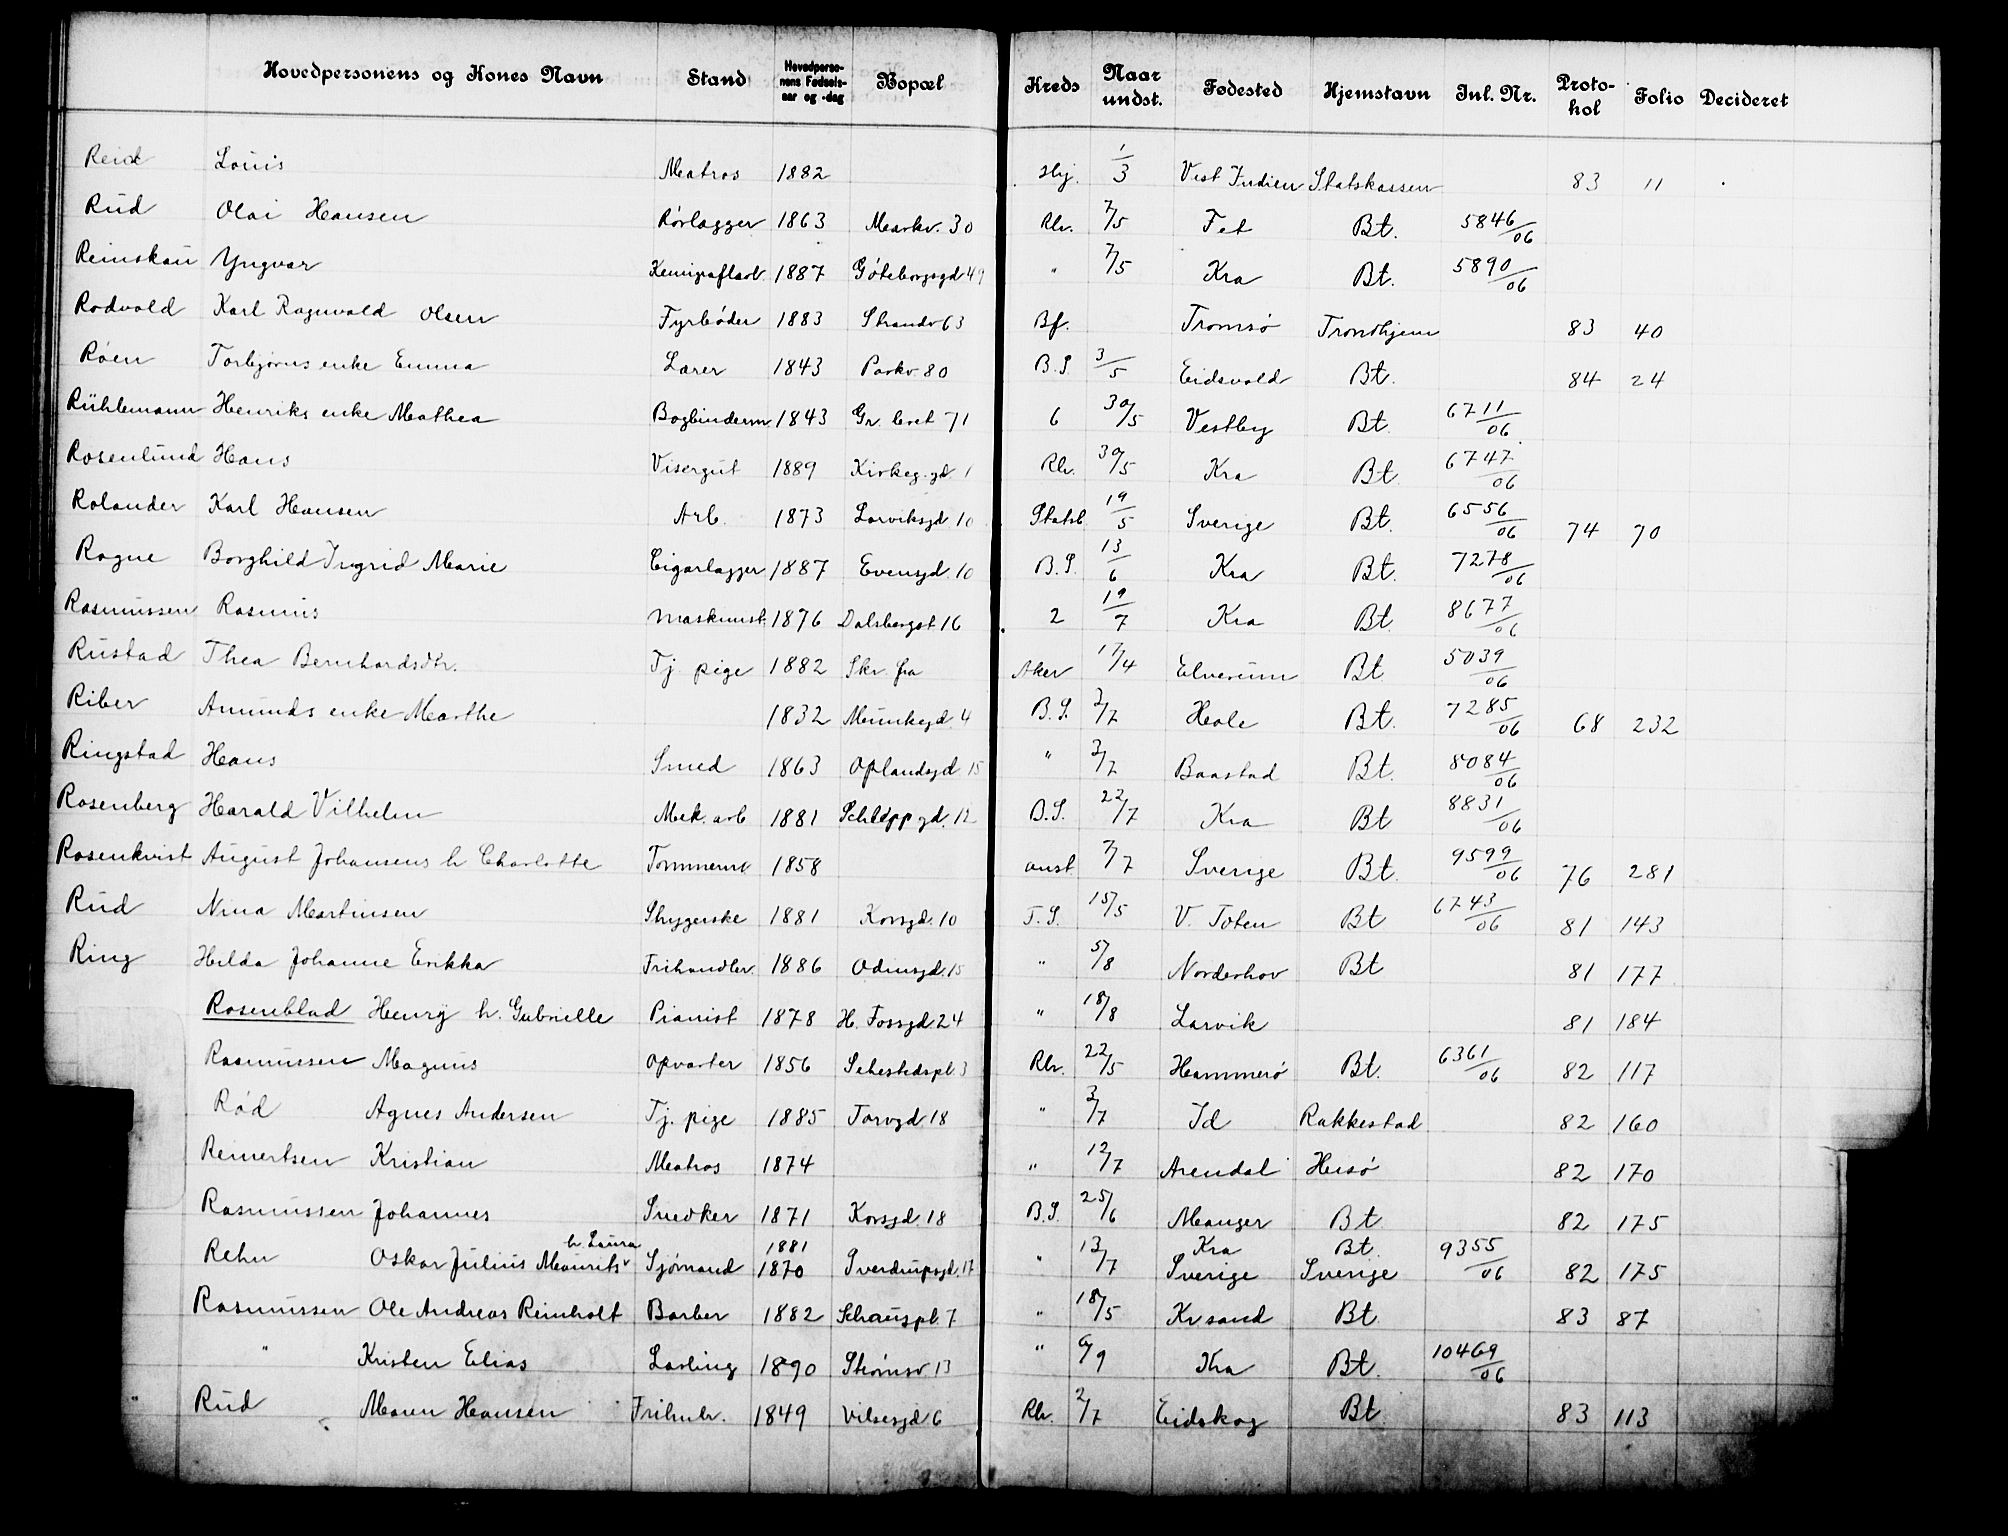 Hovedpersonens og Kones Navn Stand Hovedpersonens Fødselsaar og -dag Bopæl Kreds Naar undst. Fødested Hjemstavn Inl. Nr. Protokol Folio Decideret
Reid Louis Matros 1882 Hj. 1/3 Vest Indien Statskassen 83 11
Rud Olai Hansen Rørlægger 1863 Markv. 30 Rlv. 7/5 Fet Bt. 5846/06
Reinskau Yngvar Kemigrafarb. 1887 Göteborgsgd 49 " 7/5 Kra Bt. 5890/06
Rodvold Karl Ragnvald Olsen Fyrbøder 1883 Strandv 63 Bf. Tromsø Trondhjem 83 40
Røen Torbjørns enke Emma Lærer 1843 Parkv 80 B.S 3/5 Eidsvold Bt. 84 24
Rühlemann Henriks enke Mathea Bogbinderm. 1843 Gr. leret 71 6 30/5 Vestby Bt. 6711/06
Rosenlund Hans Visergut 1889 Kirkeg.gd. 1 Rlv. 30/5 Kra Bt 6747/06
Rolander Karl Hansen Arb. 1873 Larviksgd 10 Statsb. 19/5 Sverige Bt. 6556/06 74 70
Rogne Borghild Ingrid Marie Cigarlægger 1887 Evensgd. 10 B.S. 13/6 Kra Bt. 7278/06
Rasmussen Rasmus Maskinist 1876 Dalsbergst 16 2 19/7 Kra Bt. 8677/06
Rustad Thea Bernhardsdtr. Tj. pige 1882 Skr. fra Aker 17/4 Elverum Bt 5039/06
Riber Amunds enke Marthe 1832 Munkegd. 4 B.S. 2/7 Hole Bt. 7285/06 68 232
Ringstad Hans Smed 1863 Oplandsgd 15 " 2/7 Baastad Bt. 8084/06
Rosenberg Harald Vilhelm Mek. arb 1881 Schleppgd. 12 B.S. 22/7 Kra Bt 8831/06
Rosenkvist August Johansens h Charlotte Tømmerm 1858 anst 7/7 Sverige Bt. 9599/06 76 281
Rud Nina Martinsen Strygerske 1881 Korsgd. 10 T.S. 15/5 V. Toten Bt 6743/06 81 143
Ring Hilda Johanne Erikka Frihandler. 1886 Odinsgd. 15 " 5/8 Norderhov Bt 81 177
Rosenblad Henry h. Gabrielle Pianist 1878 H. Fossgd. 24 " 18/8 Larvik 81 184
Rasmussen Magnus Opvarter 1856 Sehestedspl. 3 Rlv. 22/5 Hammerø Bt. 6361/06 82 117
Rød Agnes Andersen Tj. pige 1885 Torvgd 18 " 3/7 Id Rakkestad 82 160
Reinertsen Kristian Matros 1874 " 12/7 Arendal Hisø 82 170
Rasmussen Johannes Snedker 1871 Korsgd. 18 B.S. 25/6 Manger Bt 82 175
h. Laura 1881 Kra Bt. 9355/06
Rehn Oskar Julius Maurits Sjømand 1870 Sverdrupsgd. 17 " 13/7 Sverige Sverige 82 175
Rasmussen Ole Andreas Reinholt Barber 1882 Schauspl. 7 " 18/5 Krsand Bt. 83 87
" Kristen Elias Lærling 1890 Strømsv. 13 " 6/9 Kra Bt. 10469/06
" Rud Maren Hansen Frihnlr. 1849 Vilsesgd 6 Rlv. 2/7 Eidskog Bt. 83 113